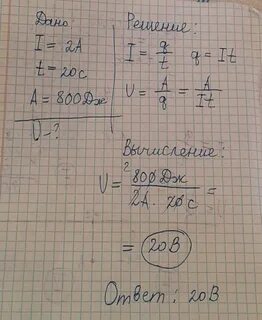 Дано:
I = 2А
t = 20с
A = 800Дж
U - ?
Решение:
I = q/t q = It
U = A/q = A/It
Вычисление:
U = 800Дж / 2А · 20с =
= 20В
Ответ: 20В